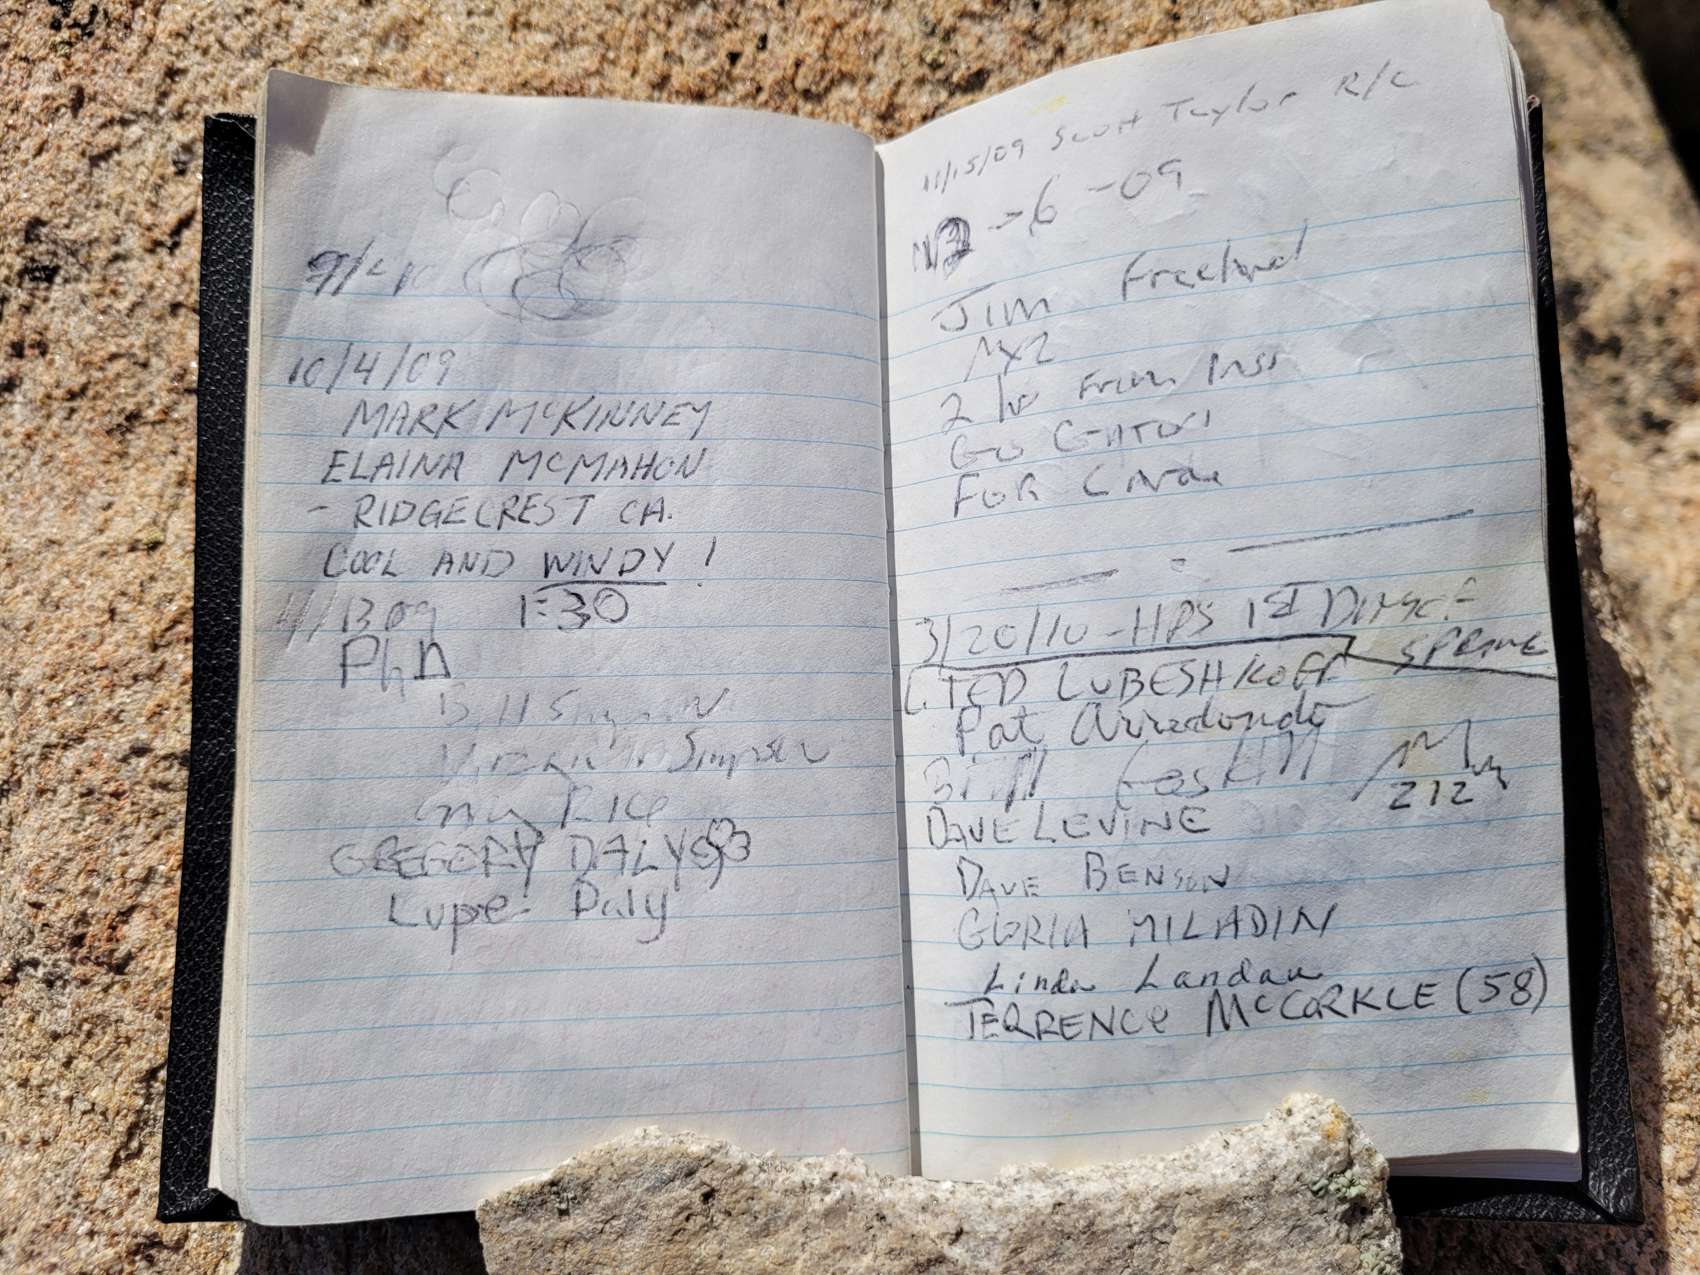 10/4/09
MARK McKINNEY
ELAINA McMAHON
- RIDGECREST CA.
COOL AND WINDY!
4/1309 1:30
Rice
GREGORY DALY
Lupe Daly
11/15/09 Scott Taylor R/C
-6-09
Jim Freeland
2 hr From
GO GATORS
FOR
3/20/10 - HPS 1ST DAY OF
SPRING
TED LUBESHKOFF
Pat Arredondo
Bill
212
DAVE LEVINE
DAVE BENSON
GLORIA MILADIN
Linda Landau
TERRENCE McCORKLE (58)